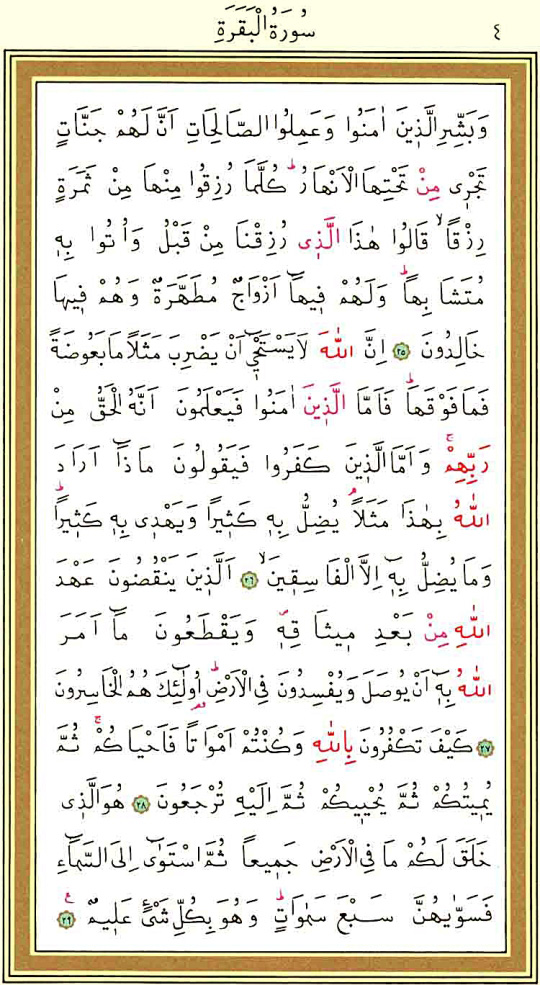 ٤ سُورَةُ الْبَقَرَةِ
وَبَشِّرِ الَّذِينَ اٰمَنُوا وَعَمِلُوا الصَّالِحَاتِ اَنَّ لَهُمْ جَنَّاتٍ
تَجْرٖى مِنْ تَحْتِهَا الْاَنْهَارُؕ كُلَّمَا رُزِقُوا مِنْهَا مِنْ ثَمَرَةٍ
رِزْقًاۙ قَالُوا هٰذَا الَّذٖى رُزِقْنَا مِنْ قَبْلُ وَاُتُوا بِهٖ
مُتَشَابِهًاؕ وَلَهُمْ فٖيهَٓا اَزْوَاجٌ مُطَهَّرَةٌ وَهُمْ فٖيهَا
خَالِدُونَ ﴿٢٥﴾ اِنَّ اللّٰهَ لَا يَسْتَحْيٖٓ اَنْ يَضْرِبَ مَثَلًا مَا بَعُوضَةً
فَمَا فَوْقَهَاؕ فَاَمَّا الَّذٖينَ اٰمَنُوا فَيَعْلَمُونَ اَنَّهُ الْحَقُّ مِنْ
رَبِّهِمْۚ وَاَمَّا الَّذٖينَ كَفَرُوا فَيَقُولُونَ مَاذَٓا اَرَادَ
اللّٰهُ بِهٰذَا مَثَلًاۘ يُضِلُّ بِهٖ كَثٖيرًا وَيَهْدٖى بِهٖ كَثٖيرًاؕ
وَمَا يُضِلُّ بِهٖٓ اِلَّا الْفَاسِقٖينَۙ ﴿٢٦﴾ اَلَّذٖينَ يَنْقُضُونَ عَهْدَ
اللّٰهِ مِنْ بَعْدِ مٖيثَاقِهٖ وَيَقْطَعُونَ مَٓا اَمَرَ
اللّٰهُ بِهٖٓ اَنْ يُوصَلَ وَيُفْسِدُونَ فِى الْاَرْضِؕ اُولٰٓئِكَ هُمُ الْخَاسِرُونَ
﴿٢٧﴾ كَيْفَ تَكْفُرُونَ بِاللّٰهِ وَكُنْتُمْ اَمْوَاتًا فَاَحْيَاكُمْۚ ثُمَّ
يُمٖيتُكُمْ ثُمَّ يُحْيٖيكُمْ ثُمَّ اِلَيْهِ تُرْجَعُونَ ﴿٢٨﴾ هُوَ الَّذٖى
خَلَقَ لَكُمْ مَا فِى الْاَرْضِ جَمٖيعًا ثُمَّ اسْتَوٰٓى اِلَى السَّمَٓاءِ
فَسَوّٰيهُنَّ سَبْعَ سَمٰوَاتٍؕ وَهُوَ بِكُلِّ شَىْءٍ عَلٖيمٌ ﴿٢٩﴾